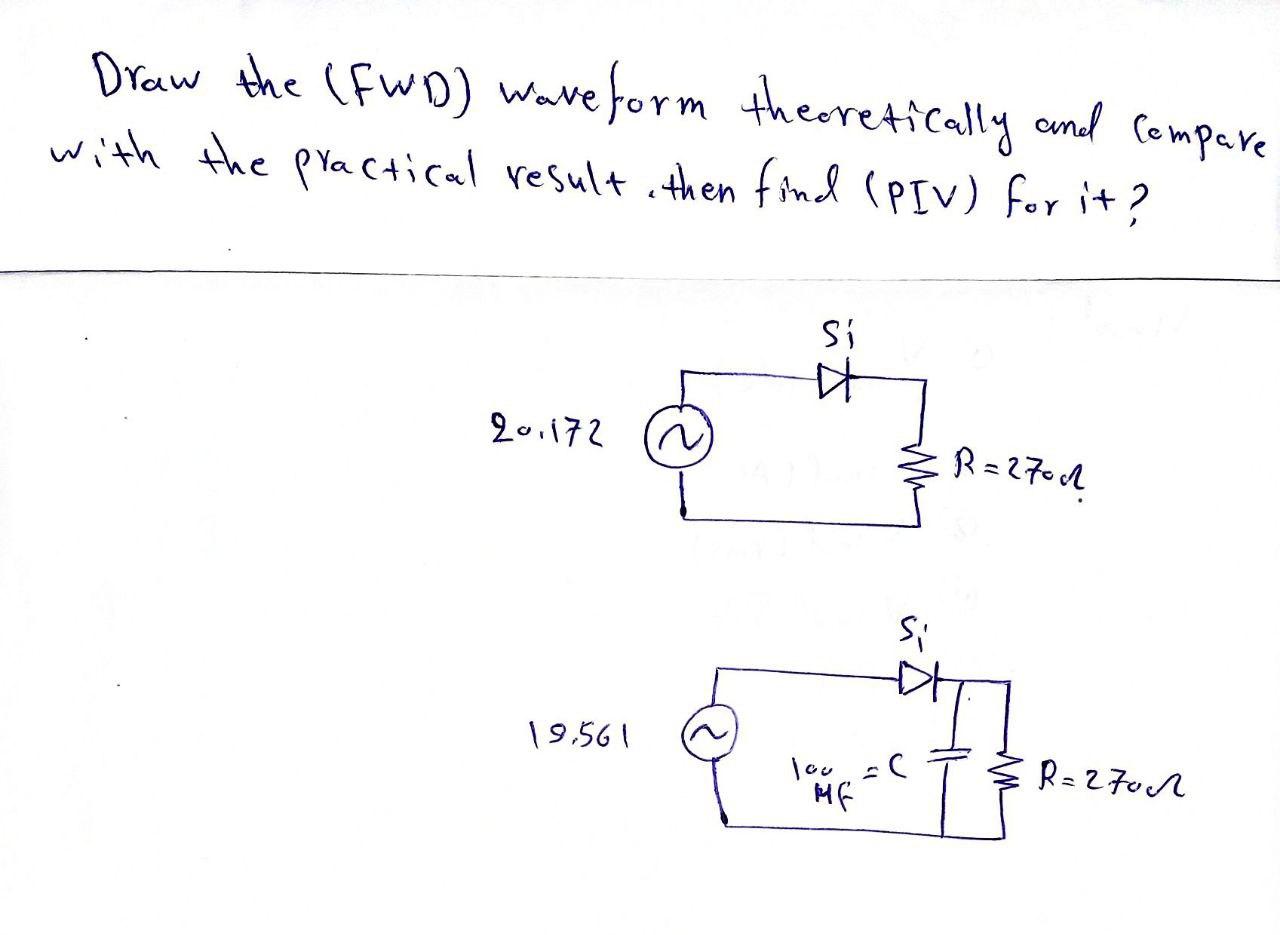 Draw the (FWD) waveform theoretically and compare
with the practical result. then find (PIV) for it?
Si
20.172
R=270Ω
Si
19.561
100 = C
MF
R=270Ω